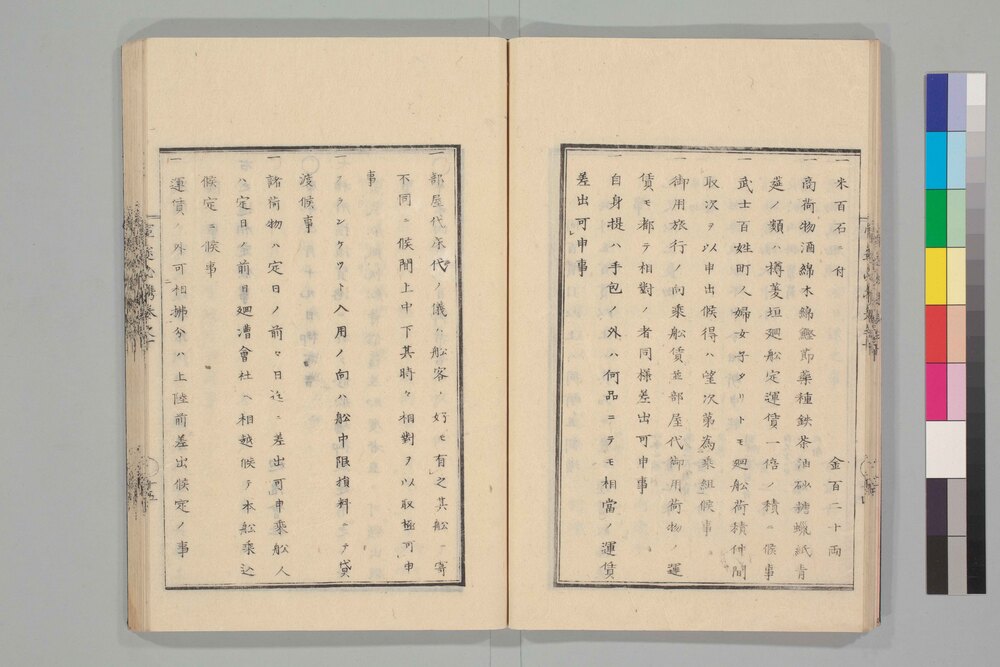 一米百石ニ付　　　　　金百二十両
一商荷物酒綿木綿鰹節藥種鉄茶油砂糖蝋紙青
莚ノ類ハ樽菱垣廻舩定運賃一倍ノ積ニ候事
一武士百姓町人婦女子タリトモ廻舩荷積仲間
取次ヲ以申出候得ハ望次第為乘組候事
一御用旅行ノ向乘舩賃並部屋代御用荷物ノ運
賃モ都テ相對ノ者同様差出可申事
一自身提ハ手包ノ外ハ何品ニテモ相當ノ運賃
差出可申事
一部屋代床代ノ儀ハ舩客ノ好モ有之其舩ニ寄
不同ニ候間上中下其時々相對ヲ以取極可申
事
一フランケット入用ノ向ハ舩中限損料ニテ貸
渡候事
一諸荷物ハ定日ノ前々日迄ニ差出可申乘舩人
ハ定日ノ前日廻漕會社ヘ相越候テ本舩乘込
候定ニ候事
一運賃ノ外可相拂分ハ上陸前差出候定ノ事